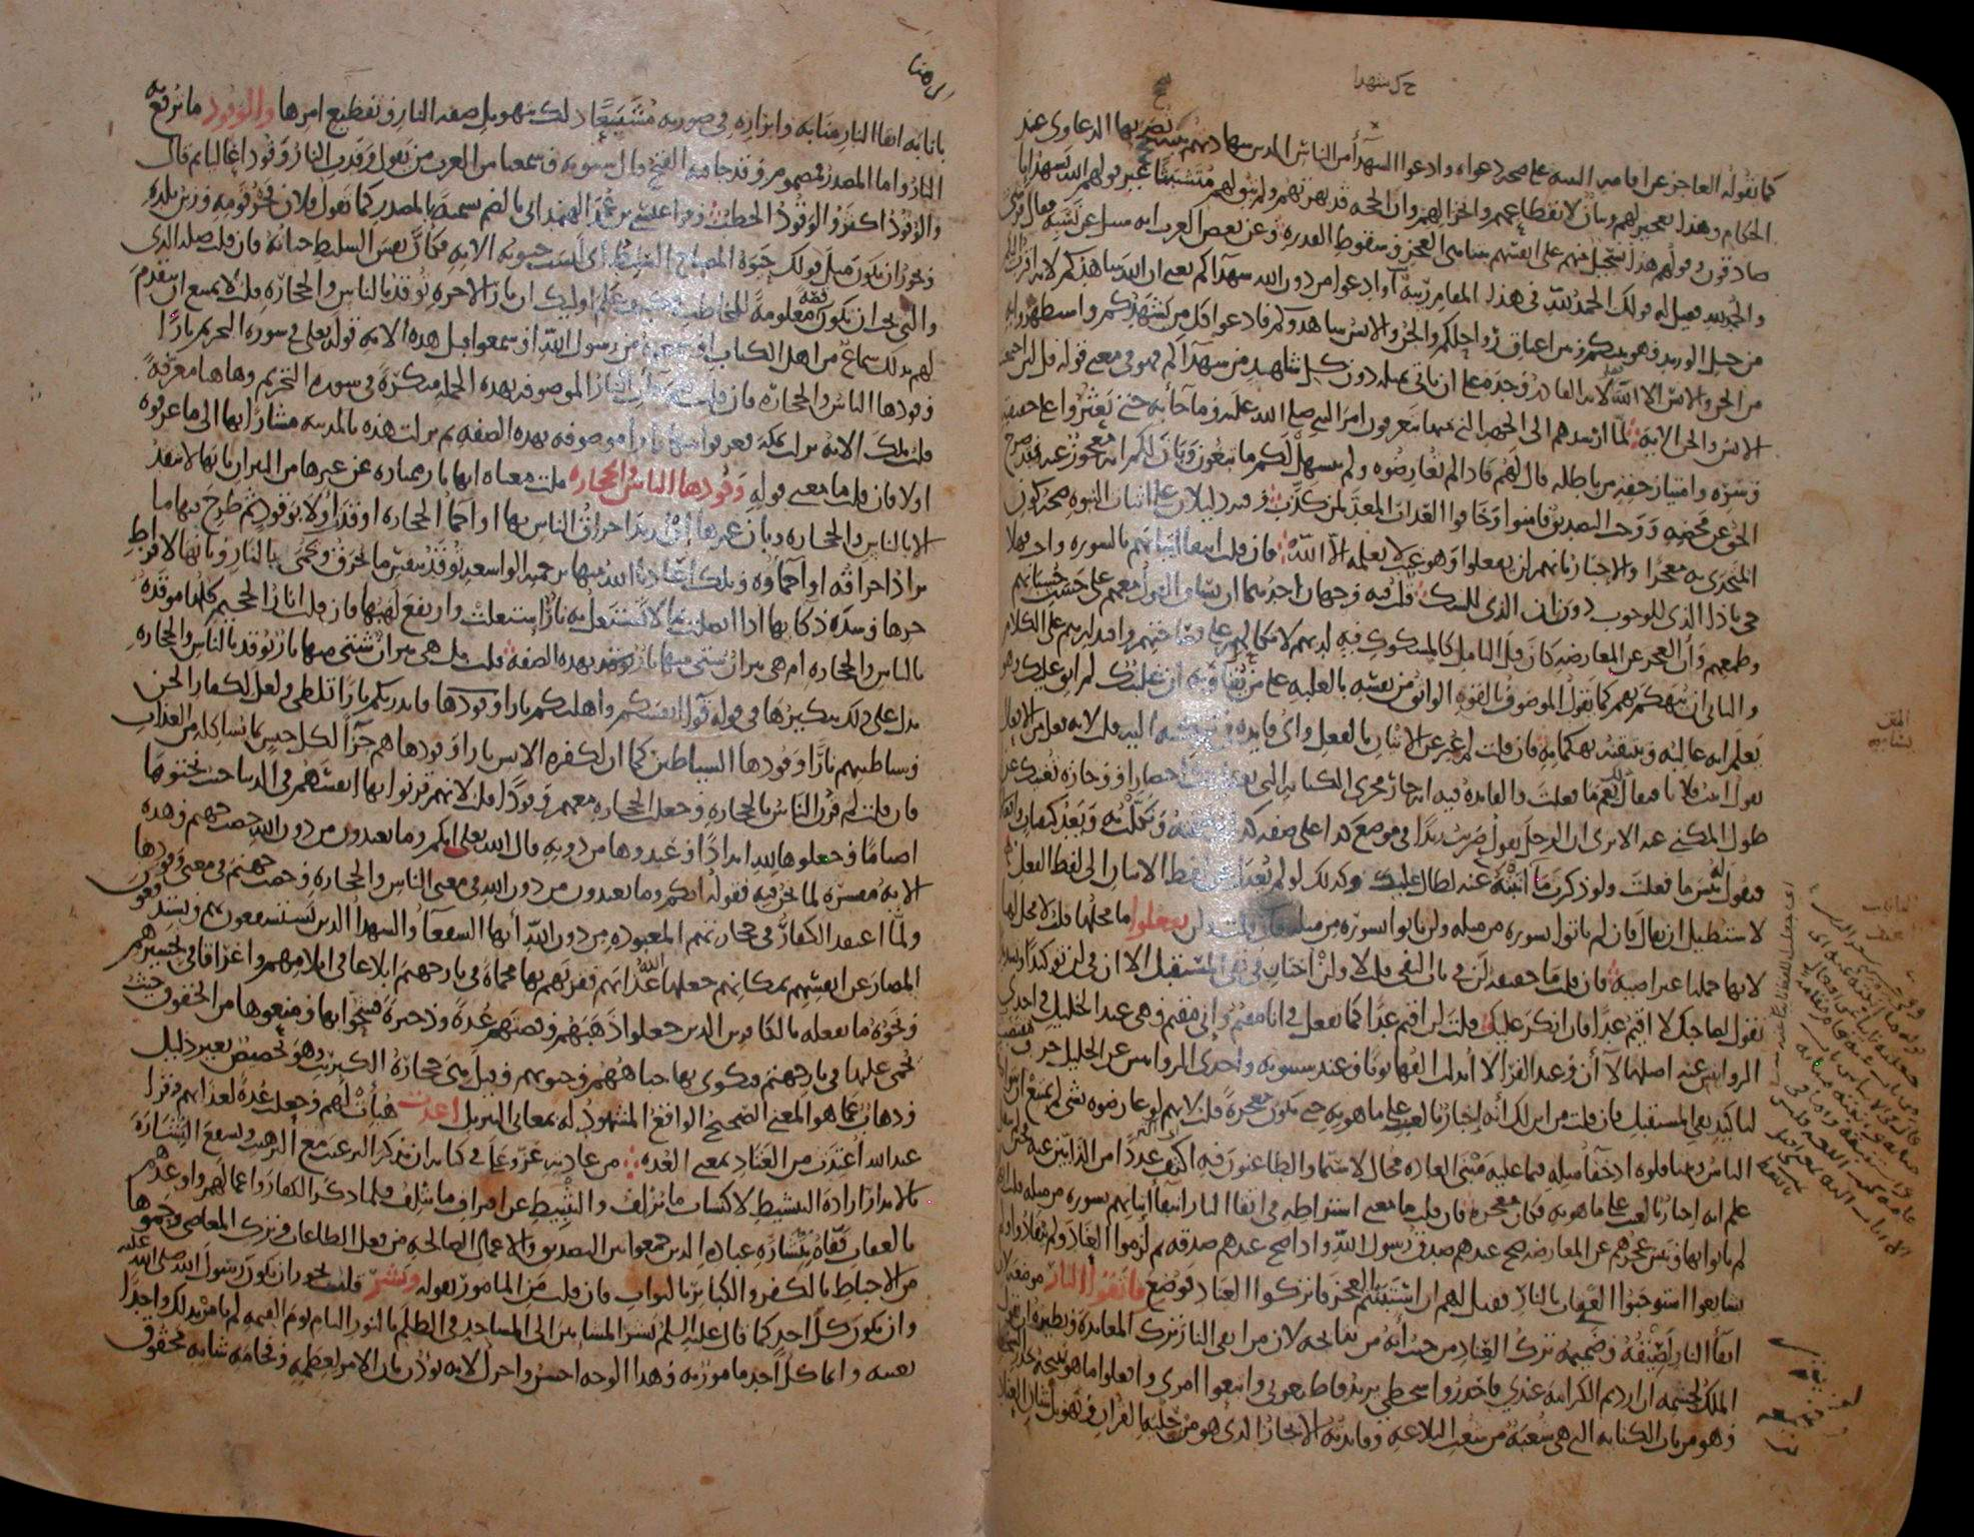 ح ك شهدا
كما يقوله العاجز عن اقامه البينه على صحه دعواه وادعوا الشهدآ من الناس الدين شهادتهم بينه تصحح بها الدعاوى عند
الحكام وهذا تعجيز لهم وبيان لانقطاعهم وانخزالهم وان الحجه قد بهرتهم ولم يبق لهم متشبثا غير قولهم الله يشهد انا
صادقون وقولهم هذا تسجيل منهم على انفسهم بتناهى العجز وسقوط القدره وعن بعض العرب انه سىل عن نسبه فقال قرشى
والحمد لله فقيل له قولك الحمد لله فى هذا المقام ريبه او ادعوا من دون الله شهدآكم يعنى ان الله شاهدكم لانه اقرب اليكم
من حبل الوريد وهو بينكم وبين اعناق رواحلكم والجن والانس شاهدوكم فادعوا كل من يشهدكم واستظهروا به
من الجن والانس الا الله لانه القادر وحده على ان ياتى بمثله دون كل شاهد من شهدآكم فهو فى معنى قوله قل لىن اجتمعت
الانس والجن الايه لما ارشدهم الى الجهه التى منها يتعرفون امر النبى صلى الله عليه وما جآ به حتى يعثروا على حقيقته
وسره وامتياز حقه من باطله قال لهم فاذا لم تعارضوه ولم يتسهل لكم ما تبغون وبان لكم انه معجوز عنه فقد صرح
الحق عن محضه ووجب التصديق فامنوا وخافوا العذاب المعد لمن كذب وفيه دليلان على اثبات النبوه صحه كون
المتحدى به معجزا والاخبار بانهم لن يفعلوا وهو غيب لا يعلمه الا الله فان قلت انتفا اتيانهم بالسوره واجب فهلا
جى باذا الذى للوجوب دون ان الذى للشك قلت فيه وجهان احدهما ان يساق القول معهم على حسب حسبانهم
وطمعهم وان العجز عن المعارضه كان قبل التامل كالمشكوك فيه لديهم لاتكالهم على فصاحتهم واقتدارهم على الكلام
والثانى ان يتهكم بهم كما يقول الموصوف بالقوه الواثق من نفسه بالغلبه على من يقاويه ان غلبتك لم ابق عليك وهو
يعلم انه غالبه ويتيقنه تهكما به فان قلت لم عبر عن الاتيان بالفعل واى فايده فى تركه اليه قلت لانه فعل من الافعال
تقول اتيت فلانا فيقال لك نعم ما فعلت والفايده فيه انه جار مجرى الكنايه التى تعطيك اختصارا ووجازه تغنيك عن
طول المكنى عنه الا ترى ان الرجل يقول ضربت زيدا فى موضع كذا على صفه كذا وشتمته ونكلت به ويعد كيفيات وافعالا
فتقول له بىس ما فعلت ولو ذكرت ما انبته عنه لطال عليك وكذلك لو لم يعدل عن لفظ الاتيان الى لفظ الفعل
لاستطيل ان يقال فان لم تاتوا بسوره من مثله ولن تاتوا بسوره من مثله فان قلت ولن تفعلوا ما محلها قلت لا محل لها
لانها جمله اعتراضيه فان قلت ما حقيقه لن فى باب النفى قلت لا ولن اختان فى نفى المستقبل الا ان فى لن توكيدا وتشديدا
تقول لصاحبك لا اقيم غدا فان انكر عليك قلت لن اقيم غدا كما تفعل فى انا مقيم وانى مقيم وهى عند الخليل فى احدى
الروايتين عنه اصلها لا ان وعند الفرآ لا ابدلت الفها نونا وعند سيبويه واحدى الروايتين عن الخليل حرف مقتضب
لتاكيد نفى المستقبل فان قلت من اين لك انه اخبار بالغيب على ما هو به حتى يكون معجزه قلت لانهم لو عارضوه بشى لم يمتنع ان يتواصفه
الناس ويتناقلوه اذ خفآ مثله فيما عليه مبنى العاده محال لا سيما والطاعنون فيه اكثف عددا من الذابين عنه فحين لم ينقل
علم انه اخبار بالغيب على ما هو به فكان معجزه فان قلت ما معنى اشتراطه فى اتقا النار انتفا اتيانهم بسوره من مثله قلت انهم اذا
لم ياتوا بها وتبين عجزهم عن المعارضه صح عندهم صدق رسول الله واذا صح عندهم صدقه ثم لزموا العناد ولم ينقادوا ولم
يشايعوا استوجبوا العقاب بالنار فقيل لهم ان استبنتم العجز فاتركوا العناد فوضع فاتقوا النار موضعه لان
اتقآ النار لصيقه وضميمه ترك العناد من حيث انه من نتايجه لان من اتقى النار ترك المعانده ونظيره ان يقول
الملك لحشمه ان اردتم الكرامه عندى فاحذروا سخطى يريد فاطيعونى واتبعوا امرى وافعلوا ما هو نتيجه حذر السخط
وهو من باب الكنايه التى هى شعبه من شعب البلاغه وفايدته الايجاز الذى هو من حليه القران وتهويل شان العناد
بانابه اتقا النار منابه وابرازه فى صورته مشيعا ذلك بتهويل صفه النار وتفظيع امرها والوقود ما ترفع به
النار واما المصدر فمضموم وقد جا فيه الفتح قال سيبويه وسمعنا من العرب من يقول وقدت النار وقودا عاليا ثم قال
والوقود اكثر والوقود الحطب وقرا عيسى بن عمر الهمدانى بالضم تسميه بالمصدر كما تقول فلان فخر قومه وزين بلده
ويجوز ان يكون مثل قولك حيوه المصباح السليط اى ليست حيوته الا به فكان نفس السليط حياته فان قلت صله الذى
والتى يجب ان تكون قصه معلومه للمخاطب فكيف علم اوليك ان نار الاخره توقد بالناس والحجاره قلت لا يمتنع ان يتقدم
لهم بذلك سماع من اهل الكتاب او سمعوه من رسول الله او سمعوا قبل هذه الايه قوله تعلى فى سوره التحريم نارا
وقودها الناس والحجاره فان قلت فلم جات النار الموصوفه بهذه الجمله منكره فى سوره التحريم وهاهنا معرفه
قلت تلك الايه نزلت بمكه فعرفوا منها نارا موصوفه بهذه الصفه ثم نزلت هذه بالمدينه مشارا بها الى ما عرفوه
اولا فان قلت ما معنى قوله وقودها الناس والحجاره قلت معناه انها نار ممتازه عن غيرها من النيران بانها لا تتقد
الا بالناس والحجاره وبان غيرها ان اريد احراق الناس بها او احمآ الحجاره اوقدت اولا بوقود ثم طرح فيها ما
يراد احراقه او احمآوه وتلك اعاذنا الله منها برحمته الواسعه توقد بنفس ما تحرق وتحمى بالنار وبانها لافراط
حرها وشده ذكايها اذا اتصلت بما لا تشتعل به نار اشتعلت وارتفع لهبها فان قلت انار الجحيم كلها موقده
بالناس والحجاره ام هى نيران شتى منها نار توقد بهذه الصفه قلت بل هى نيران شتى منها نار توقد بالناس والحجاره
يدل على ذلك تنكيرها فى قوله قوآ انفسكم واهليكم نارا وقودها فانذرتكم نارا تلظى ولعل لكفار الجن
وشياطينهم نارا وقودها الشياطين كما ان لكفره الانس نارا وقودها هم جزآ لكل جنس بما يشاكله من العذاب
فان قلت لم قرن الناس بالحجاره وجعلت الحجاره معهم وقودا قلت لانهم قرنوا بها انفسهم فى الدنيا حيث نحتوها
اصناما وجعلوها لله اندادا وعبدوها من دونه قال الله تعلى انكم وما تعبدون من دون الله حصب جهنم وهذه
الايه مفسره لما نحن فيه فقوله انكم وما تعبدون من دون الله فى معنى الناس والحجاره وحصب جهنم فى معنى وقودها
ولما اعتقد الكفار فى حجارتهم المعبوده من دون الله انها الشفعآ والشهدا الذين يستشفعون بهم ويستدفعون
المضار عن انفسهم بمكانهم جعلها الله عذابهم فقرنهم بها محماه فى نار جهنم ابلاغا فى ايلامهم واغراقا فى تحسيرهم
ونحوه ما يفعله بالكانزين الذين جعلوا ذهبهم وفضتهم عده وذخيره فشحوا بها ومنعوها من الحقوق حيث
يحمى عليها فى نار جهنم فتكوى بها جباههم وجنوبهم وقيل هى حجاره الكبريت وهو تخصيص بغير دليل
وذهاب عما هو المعنى الصحيح الواقع المشهود له بمعانى التنزيل اعدت هيات لهم وجعلت عده لعذابهم وقرا
عبد الله اعتدت من العتاد بمعنى العده من عادته عز وعلا فى كتابه ان يذكر الترغيب مع الترهيب ويشفع البشاره
بالانذار اراده التنشيط لاكتساب ما يزلف والتثبيط عن اقتراف ما يتلف فلما ذكر الكفار واعمالهم واوعدهم
بالعقاب قفاه ببشاره عباده الذين جمعوا بين التصديق والاعمال الصالحه من فعل الطاعات وترك المعاصى وحموها
من الاحباط بالكفر والكباير بالثواب فان قلت من المامور بقوله وبشر قلت يجوز ان يكون رسول الله صلى الله عليه
وان يكون كل احد كما قال عليه السلم بشر المشايين الى المساجد فى الظلم بالنور التام يوم القيمه لم يامر بذلك واحدا
بعينه وانما كل احد مامور به وهذا الوجه احسن واجزل لانه يوذن بان الامر لعظمه وفخامه شانه محقوق